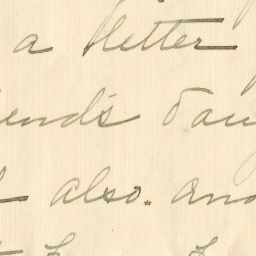 a letter
end's dau
also. and